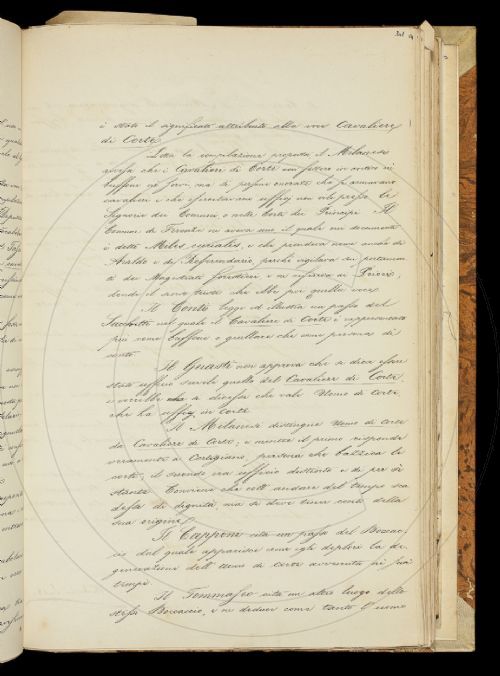 è stato il significato attribuito alla voce Cavaliere
di Corte.
Letta la compilazione proposta, il Milanesi
avvisa che i Cavalieri di Corte non furono in antico nè
buffoni nè servi, ma sì persone onorate che si armavano
cavalieri e che esercitavano uffizj non vili presso le
Signorie dei Comuni o nelle Corti dei Principi. Il
Comune di Firenze ne aveva uno il quale nei documenti
è detto Miles curialis, e che prendeva nome anche di
Araldo e di Referendario, perchè vigilava sui portamenti
dei Magistrati forestieri e ne riferiva ai Priori,
donde il senso tristo che ebbe poi quella voce.
Il Conti legge ed illustra un passo del
Sacchetti nel quale il Cavaliere di Corte è rappresentato
più come buffone e giullare che come persona di
conto.
Il Guasti non approva che si dica essere
stato ufficio servile quello del Cavaliere di Corte,
e vorrebbe che si dicesse che vale Uomo di Corte
che ha uffizj in Corte.
Il Milanesi distingue Uomo di Corte
da Cavaliere di Corte; e mentre il primo risponde
veramente a Cortigiano, persona che bazzica le
corti, il secondo era ufficio distinto e di per sè
stante. Conviene che coll'andare del tempo sca-
desse di dignità, ma si deve tener conto della
sua origine.
Il Capponi cita un passo del Boccac-
cio dal quale apparisce come egli deplori la de-
generazione dell'Uomo di Corte avvenuta ai suoi
tempi.
Il Tommaseo cita un altro luogo dello
stesso Boccaccio, e ne deduce come tanto l'uomo